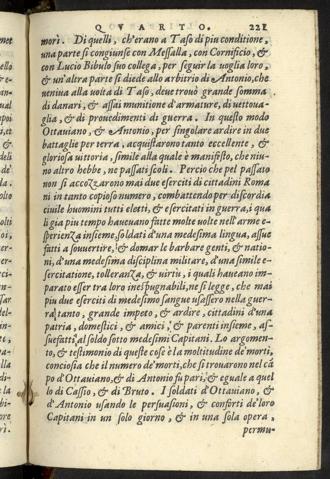 QVARTO. 221
mori. Di quelli, ch'erano a Taso di piu conditione,
una parte si congiunse con Messalla, con Cornificio, &
con Lucio Bibulo suo collega, per seguir la uoglia loro,
& un'altra parte si diede allo arbitrio di Antonio, che
ueniua alla uolta di Taso, doue trouò grande somma
di danari, & assai munitione d'armature, di uettoua-
glia, & di prouedimenti di guerra. In questo modo
Ottauiano, & Antonio, per singolare ardire in due
battaglie per terra, acquistarono tanto eccellente, &
gloriosa uittoria, simile alla quale è manifisto, che niu-
no altro hebbe, ne passati secoli. Percio che pel passato
non si accozzarono mai due eserciti di cittadini Roma
ni in tanto copioso numero, combattendo per discordia
ciuile huomini tutti eletti, & esercitati in guerra, i qua
li gia piu tempo haueuano fatte molte uolte nell'arme e-
sperienza insieme, soldati d'una medesima lingua, assue
fatti a souuertire, & domar le barbare genti, & natio-
ni, d'una medesima disciplina militare, d'una simile e-
sercitatione, tolleranza, & uirtù, i quali haueano im-
parato esser tra loro inespugnabili, ne si legge, che mai
piu due eserciti di medesimo sangue usassero nella guer-
ra tanto, grande impeto, & ardire, cittadini d'una
patria, domestici, & amici, & parenti insieme, as-
suefatti al soldo sotto medesimi Capitani. Lo argomen-
to, & testimonio di queste cose è la moltitudine de' morti,
conciosia che il numero de' morti, che si trouarono nel cã
po d'Ottauiano, & di Antonio fu pari, & eguale a quel
lo di Cassio, & di Bruto. I soldati d'Ottauiano, &
d'Antonio usando le persuasioni, & conforti de' loro
Capitani in un solo giorno, & in una sola opera,
permu-